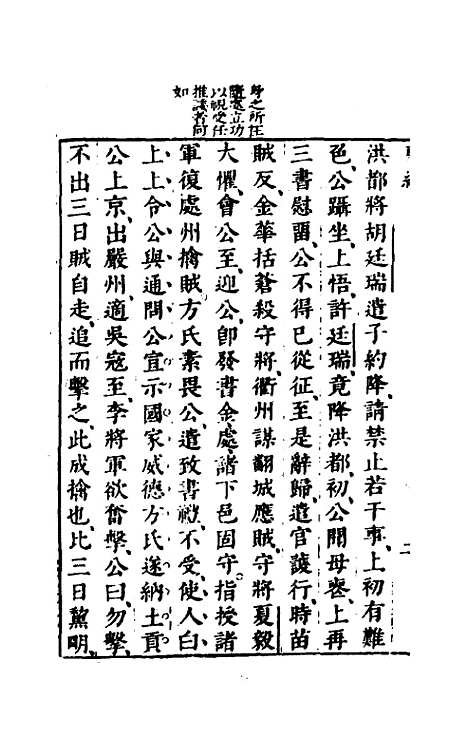 身之所在
隨處立功
以視受任
推諉者何
如
洪都將胡廷瑞遣子約降請禁止若干事上初有難
色公躡坐上悟許廷瑞竟降洪都初公聞母喪上再
三書慰畱公不得已從征至是辭歸遣官護行時苗
賊反金華括蒼殺守將衢州謀翻城應賊守將夏毅
大懼會公至迎公卽發書金處諸下邑固守指授諸
軍復處州擒賊方氏素畏公遣致書禮不受使人白
上上令公與通問公宣示國家威德方氏遂納土貢
公上京出嚴州適吳寇至李將軍欲奮擊公曰勿擊
不出三日賊自走追而擊之此成擒也比三日黧明